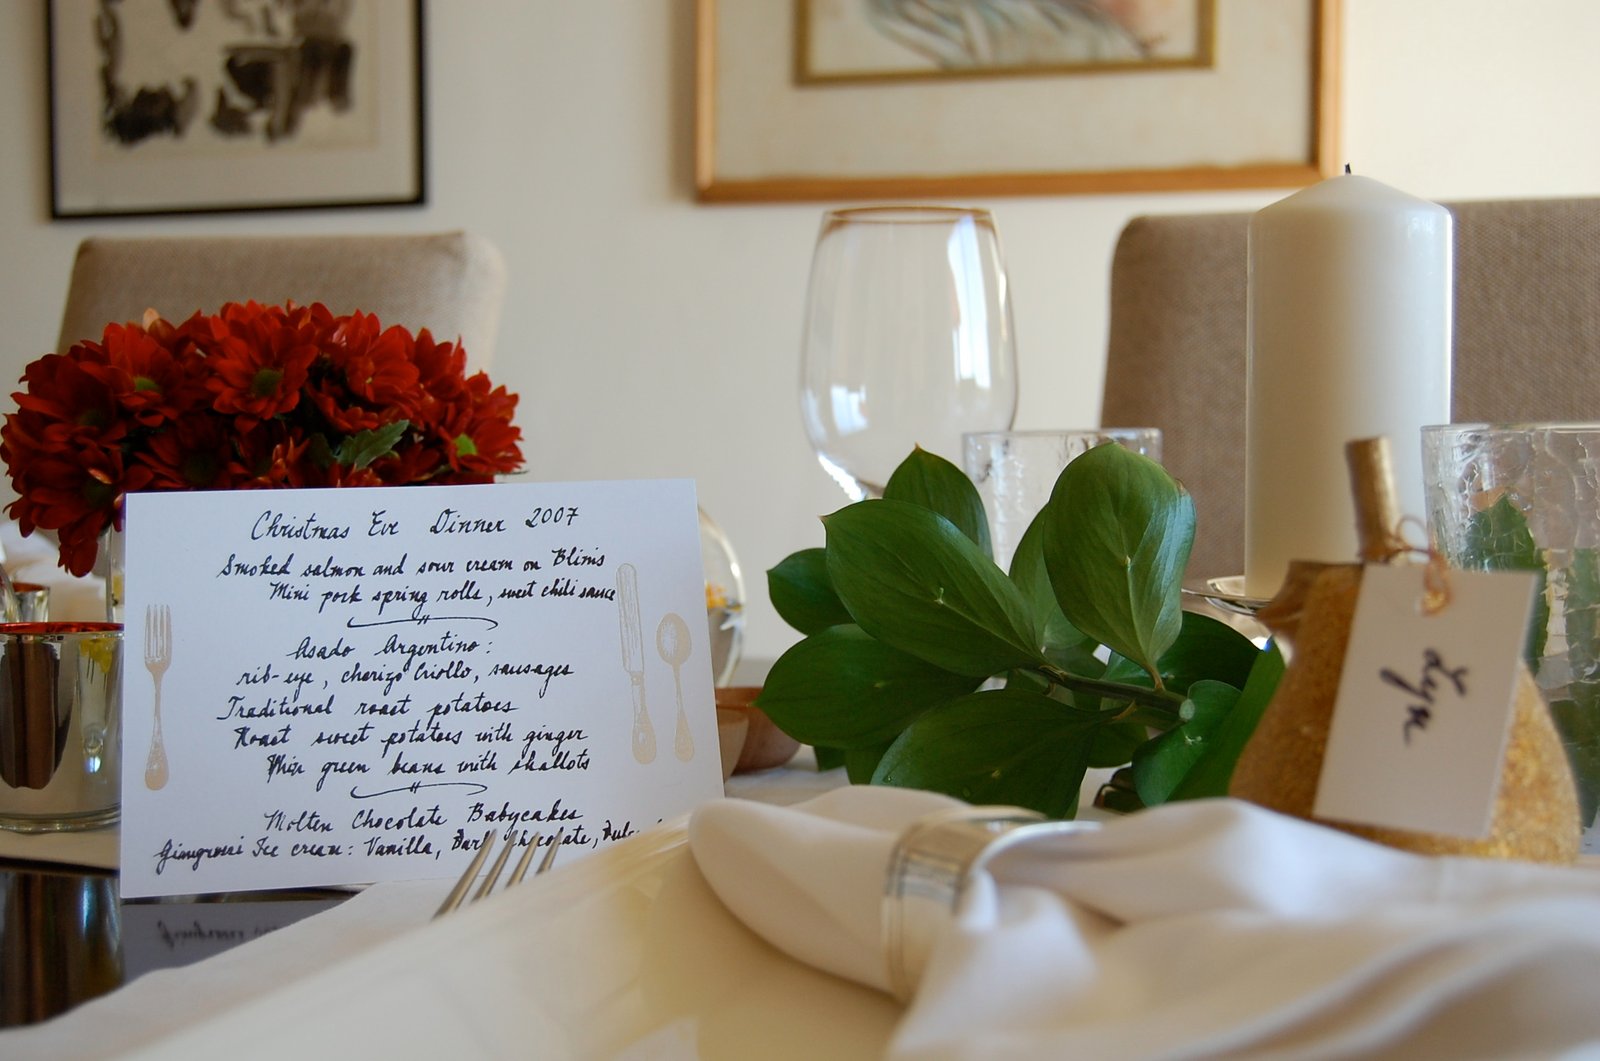 Christmas Eve Dinner 2007
Smoked salmon and sour cream on Blinis
Mini pork spring rolls, sweet chili sauce
Asado Argentino:
rib-eye, chorizo Criollo, sausages
Traditional roast potatoes
Roast sweet potatoes with ginger
Thin green beans with shallots
Molten Chocolate Babycakes
Ice cream: Vanilla, Dark Chocolate,
Lyn